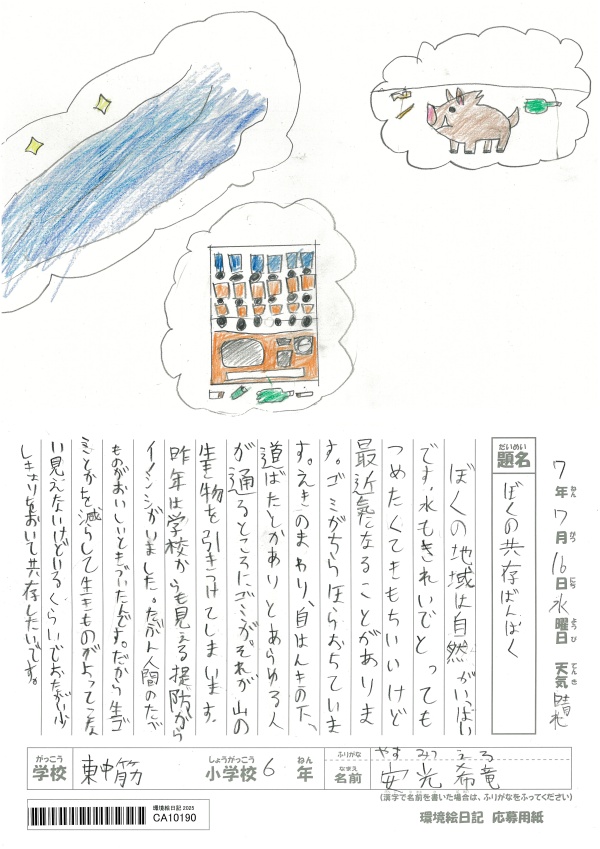 7年7月16日水曜日 天気 晴れ
ねん がつ にち ようび てんき
だいめい
題名
ぼくの共存ばんぱく
ぼくの地域は自然がいっぱい
です。水もきれいでとっても
つめたくてきもちいいけど
最近気になることがありま
す。ゴミがちらほらおちていま
す。えきのまわり、自はんきの下、
道ばたとかありとあらゆる人
が通るところにゴミが。それが山の
生き物を引きつけてしまいます。
昨年は学校からも見える堤防から
イノシシがいました。たぶん人間のたべ
ものがおいしいときづいたんです。だから生ゴ
ミとかを減らして生きものがよってこな
い見えないけどいるくらいでおたがい少
しきょりをおいて共存したいです。
がっこう
学校 東中筋
しょうがっこう
小学校 6 年
ねん
ふりがな やすみつ きろ
なまえ
名前 安光希竜
(漢字で名前を書いた場合は、ふりがなをふってください)
環境絵日記 2025
CA10190
環境絵日記 応募用紙